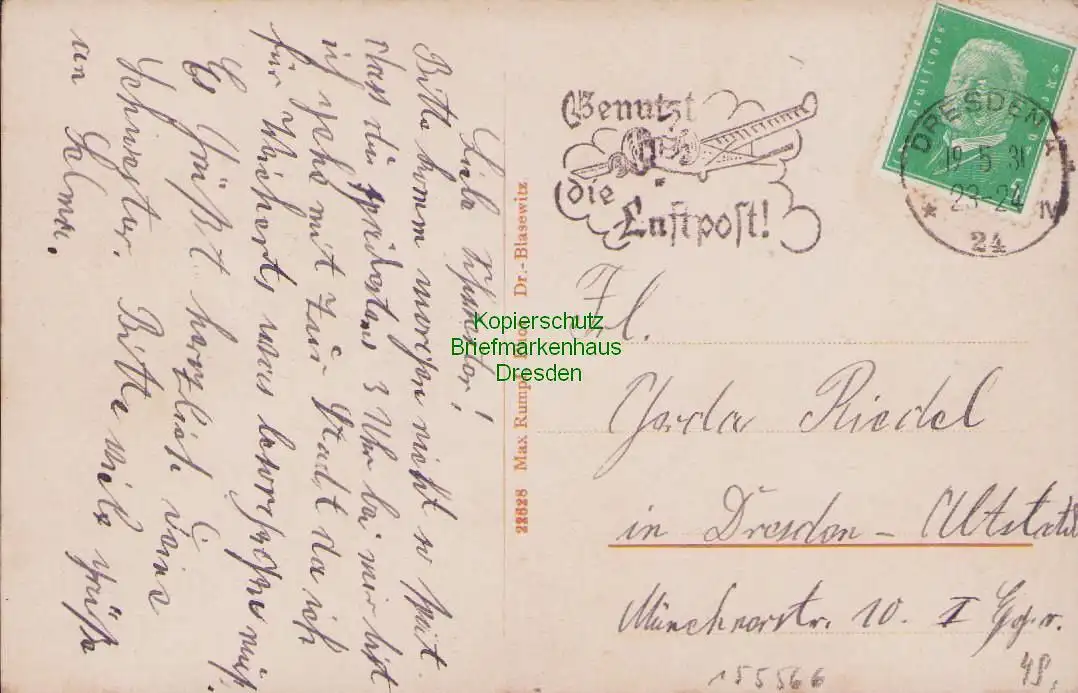 Liebe Schwester!
Bitte komm morgen nicht so spät.
dass du spätestens 3 Uhr bei mir bist
ich gehe mit zur Stadt da ich
für Wichert, was besorgen muß.
Es grüßt herzlich Deine
Schwester. Bitte viele Grüße
an
22628 Max Rumpf Dr.-Blasewitz
Benutzt
die
Luftpost!
Deutsches
DRESDEN A
19.5.31
23-24
* IV
24
Frl.
Gerda Riedel
in Dresden – Altstadt
Münchnerstr. 10. I
155566
48,
Kopierschutz
Briefmarkenhaus
Dresden